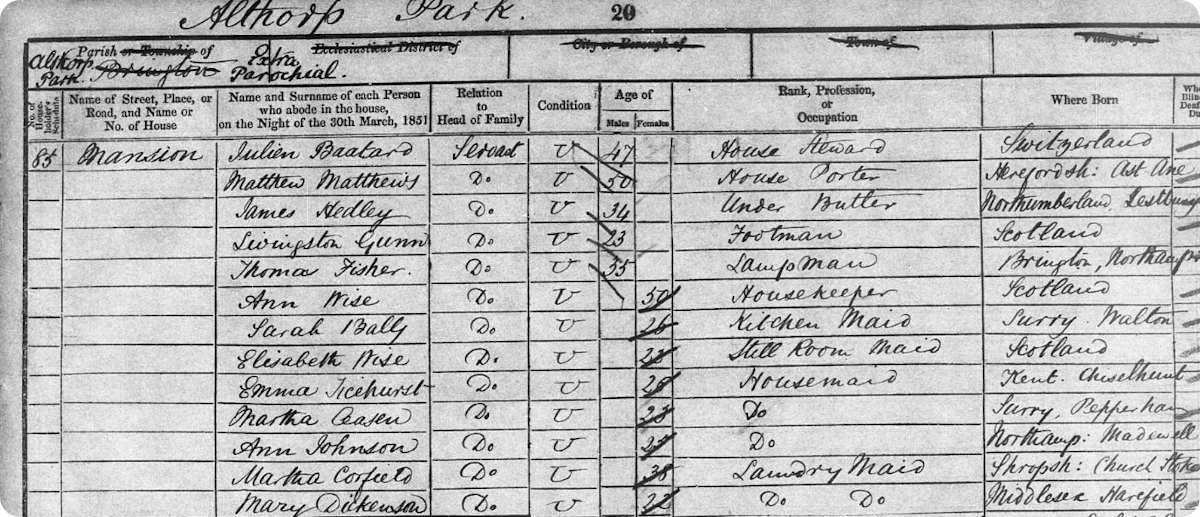 Althorp Park. 20
Althorp Park. Parish or Township of Brington Extra Parochial. Ecclesiastical District of City or Borough of Town of Village of
No. of House-holder's Schedule Name of Street, Place, or Road, and Name or No. of House Name and Surname of each Person who abode in the house, on the Night of the 30th March, 1851 Relation to Head of Family Condition Age of Males Females Rank, Profession, or Occupation Where Born
85 Mansion Julien Baatard Servant U 47 House Steward Switzerland
Matthew Matthews Do U 50 House Porter Herefordsh:
James Hedley Do U 34 Under Butler Northumberland
Livingston Gunn Do U 23 Footman Scotland
Thomas Fisher. Do U 55 Lampman Brington, Northamp
Ann Wise Do U 50 Housekeeper Scotland
Sarah Bally Do U 26 Kitchen Maid Surry Walton
Elisabeth Wise Do U Still Room Maid Scotland
Emma Ticehurst Do U Housemaid Kent. Chiselhurst
Martha Do U Do Surry, Pepperham
Ann Johnson Do U Do Northamp: Madewell
Martha Corfield Do U 38 Laundry Maid Shropsh: Church Stoke
Mary Dickenson Do U 22 Do Do Middlesex Harefield